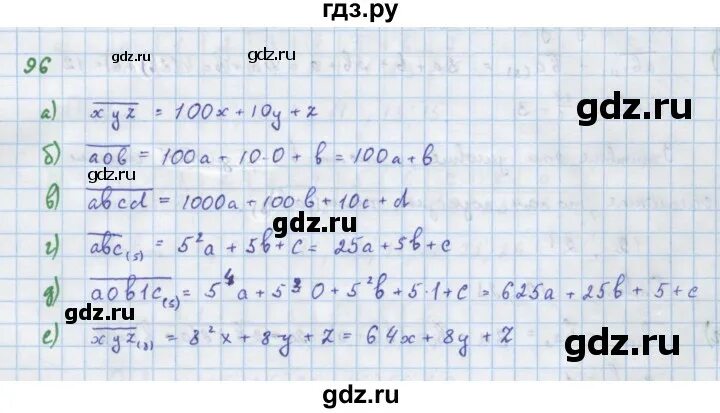 гдз.ру
96
gdz.ru
gdz.ru
а) xyz = 100x + 10y + z
gdz.ru
б) a0b = 100a + 10·0 + b = 100a + b
gdz.ru
в) abcd = 1000a + 100·b + 10c + d
gdz.ru
г) abc(5) = 5²a + 5b + c = 25a + 5b + c
д) a0b1c(5) = 5⁴a + 5³0 + 5²b + 5·1 + c = 625a + 25b + 5 + c
gdz.ru
е) xyz(8) = 8²x + 8y + z = 64x + 8y + z
gdz.ru
gdz.ru